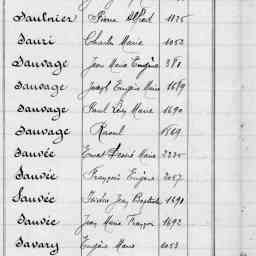 Saulnier Pierre Alfred 1125
Sauri Charles Marie 1052
Sauvage Jean Marie Eugène 381
Sauvage Joseph Eugène Marie 1689
Sauvage Paul Léon Marie 1690
Sauvage Raoul 1869
Sauvée Ernest Désiré Marie 2235
Sauvée François Eugène 2057
Sauvée Isidore Jean Baptiste 1691
Sauvée Jean Marie François 1692
Savary Eugène Marie 1053